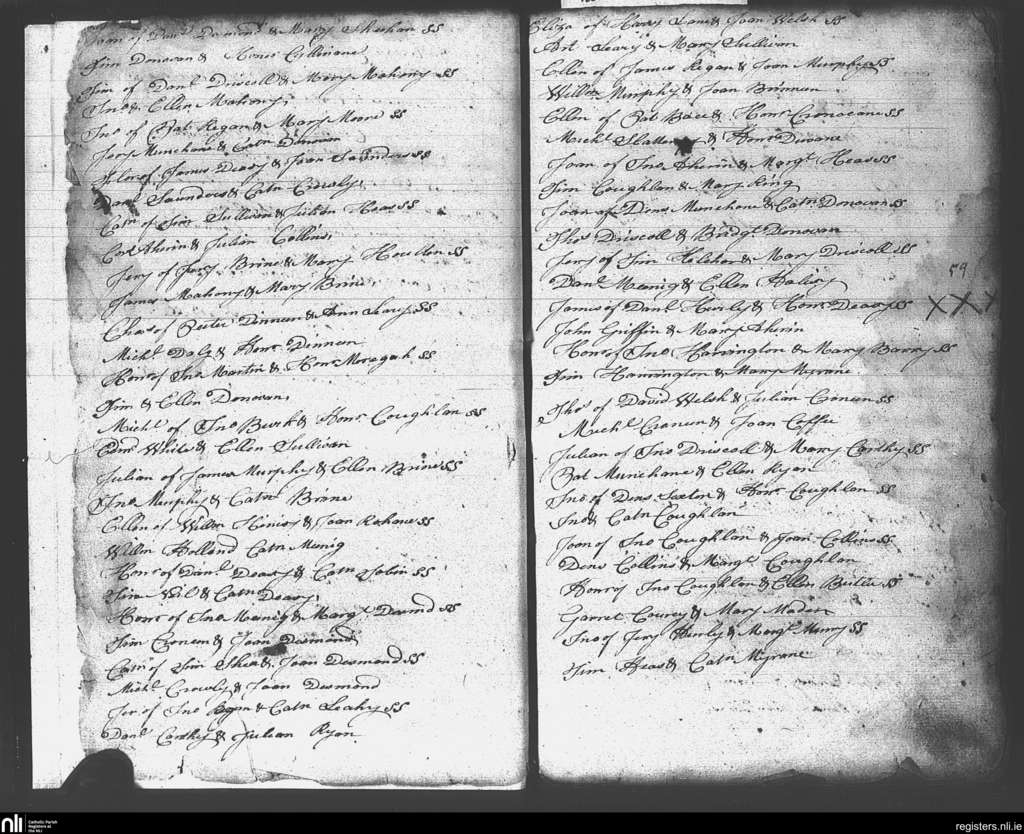 Joan of Danl & Mary Sheehan SS
Tim Donovan & Honor Cullinane
Tim of Danl Driscoll & Mary Mahony SS
Jno & Ellen Mahony
Jno of Pat Regan & Mary Moore SS
Jery Munchane & Catn Donovan
of James Deasy & Joan Saunders SS
Danl Saunders & Catn Crowly
Catn of Tim Sullivan & Heas SS
Corl Aherin & Julian Collins
Jery of Jery Brine & Mary SS
James Mahony & Mary Brine
Chas of Peeter Dinneen & Ann SS
Michl Daly & Honr Dinneen
Honr of Jno Martin & Honr SS
Tim & Ellen Donovan
Michl of Jno Burk & Honr Coughlan SS
Edmd White & Ellen Sullivan
Julian of James Murphy & Ellen Brine SS
Jno Murphy & Catn Brine
Ellen of Willm & Joan SS
Willm Holland Catn Meenig
Honr of Danl Deasy & Catn Tobin SS
Tim & Catn Deasy
Honr of Jno Meenig & Margt SS
Tim Croneen & Joan Desmond
Catn of Tim Shea & Joan Desmond SS
Michl Crowly & Joan Desmond
Jer of Jno & Catn Leahy SS
Danl Carthy & Julian Ryan
Eliza of Harry & Joan Welsh SS
Art Leary & Mary Sullivan
Ellen of James Regan & Joan Murphy SS
Willm Murphy & Joan Brinnan
Ellen of Pat & Honr SS
Michl & Honr
Joan of Jno Aherin & Margt Heas SS
Tim Coughlan & Mary King
Joan of Dens Munchane & Catn Donovan SS
Thos Driscoll & Bridgt Donovan
Jery of Tim & Mary Driscoll SS
Danl Meenig & Ellen
59
James of Danl Hurly & Honr Deasy SS XXX
John Griffin & Mary Aherin
Honr of Jno Harrington & Mary Barry SS
Tim Harrington & Mary Myrane
Thos of David Welsh & Julian Croneen SS
Michl Croneen & Joan
Julian of Jno Driscoll & Mary Carthy SS
Pat Munchane & Ellen Ryan
Jno of Dens & Honr Coughlan SS
Jno & Catn Coughlan
Joan of Jno Coughlan & Joan Collins SS
Dens Collins & Margt Coughlan
Henry of Jno Coughlan & Ellen SS
Garret Courcy & Mary Madden
Jno of Jery Hurly & Margt SS
Tim Heas & Catn Myrane
nli Catholic Parish
Registers at
the NLI
registers.nli.ie